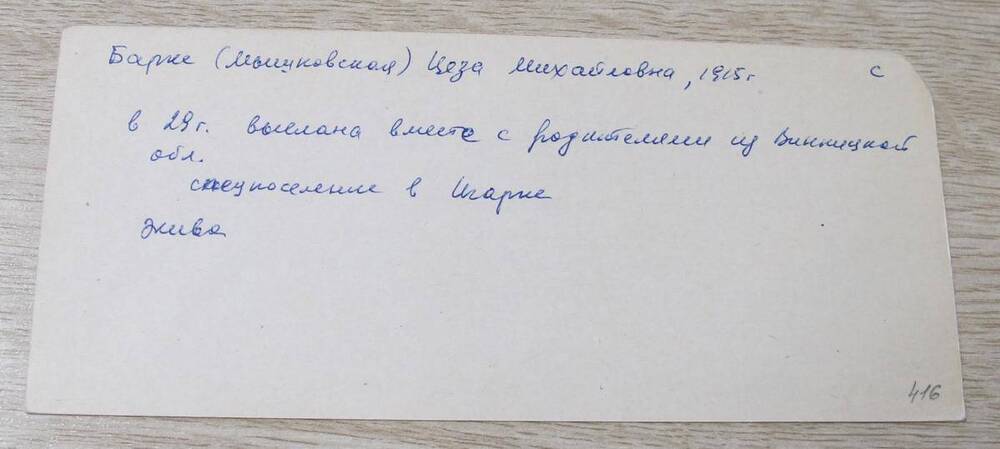 Барке (Мышковская) Цеза Михайловна, 1915г с
в 29г. выслана вместе с родителями из Винницкой
обл.
спецпоселение в Игарке
жива
416